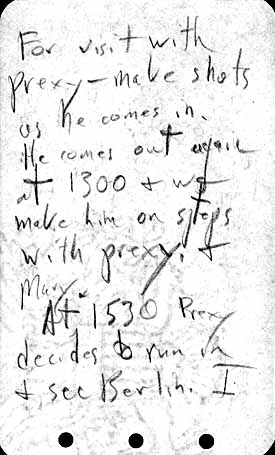 For visit with
prexy - make shots
as he comes in.
He comes out again
at 1300 + we
make him on steps
with prexy, +
Mary.
At 1530 Prexy
decides to run in
+ see Berlin. I